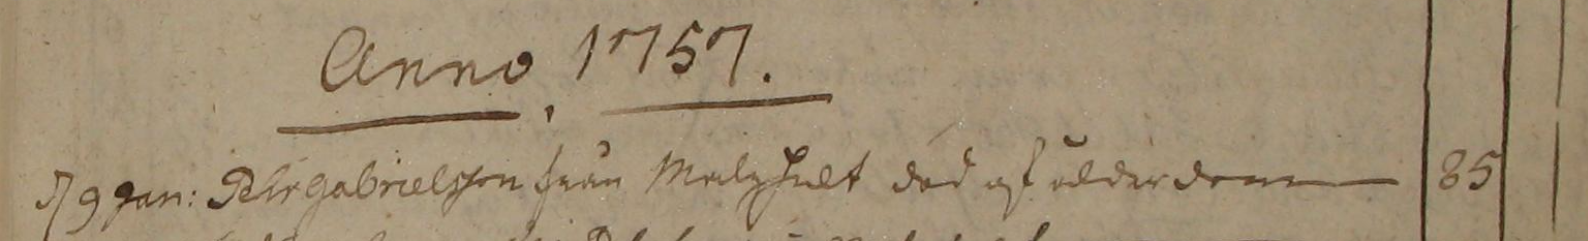 Anno, 1757.
D 9 Jan: Pehr Gabrielsson från död af ålderdom 85